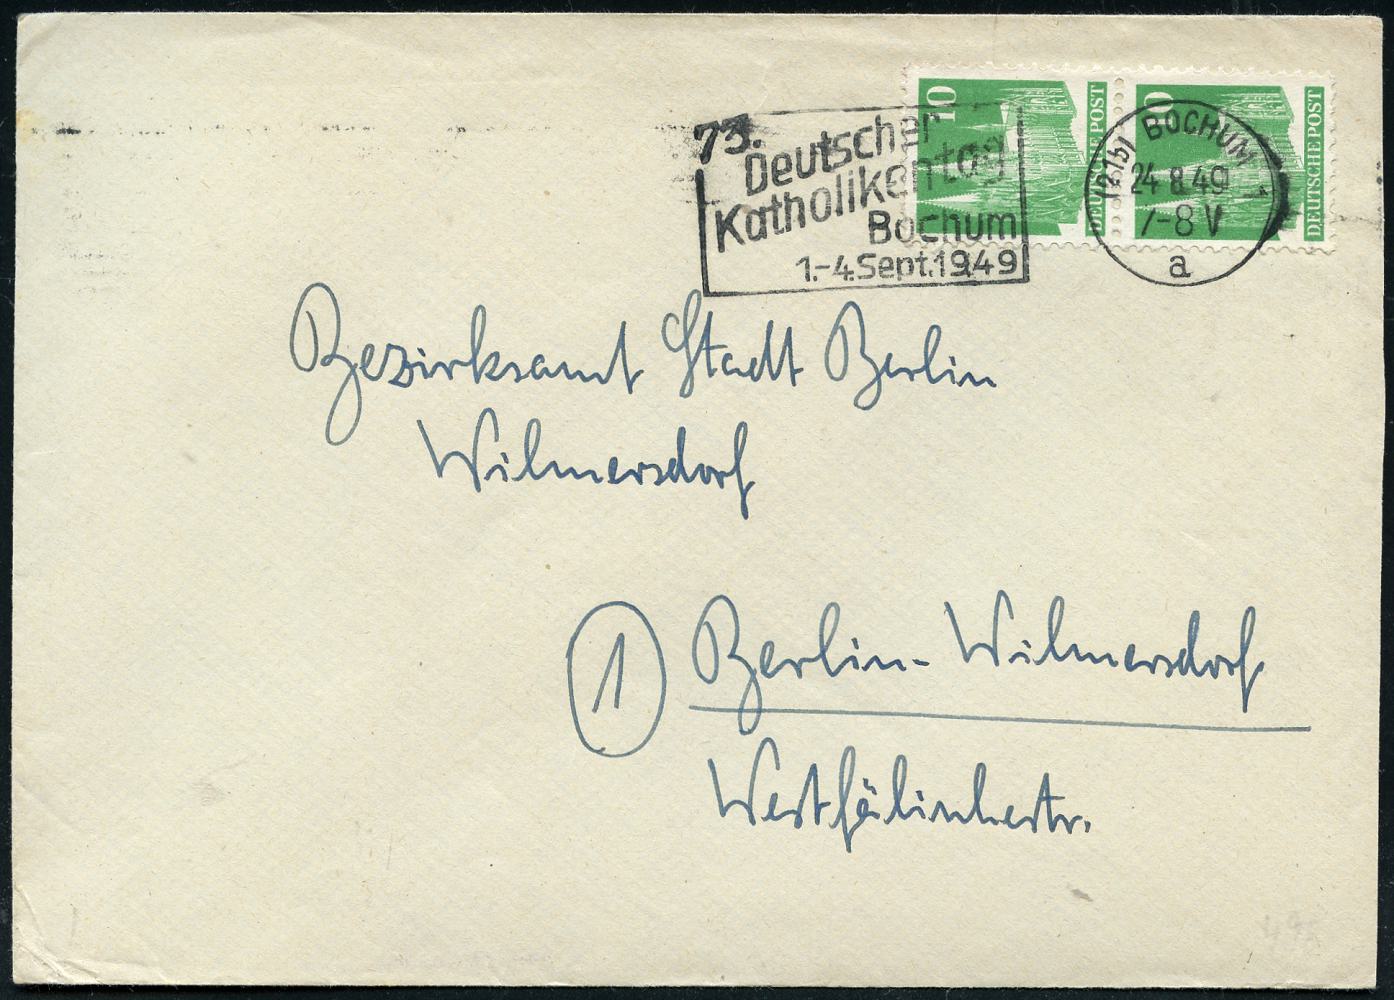 73.
Deutscher
Katholikentag
Bochum
1.-4.Sept.1949
10 DEUTSCHE POST
10 DEUTSCHE POST
(21b) BOCHUM 1
24.8.49
7-8 V
a
Bezirksamt Stadt Berlin
Wilmersdorf
1 Berlin-Wilmersdorf
Westfälischestr.